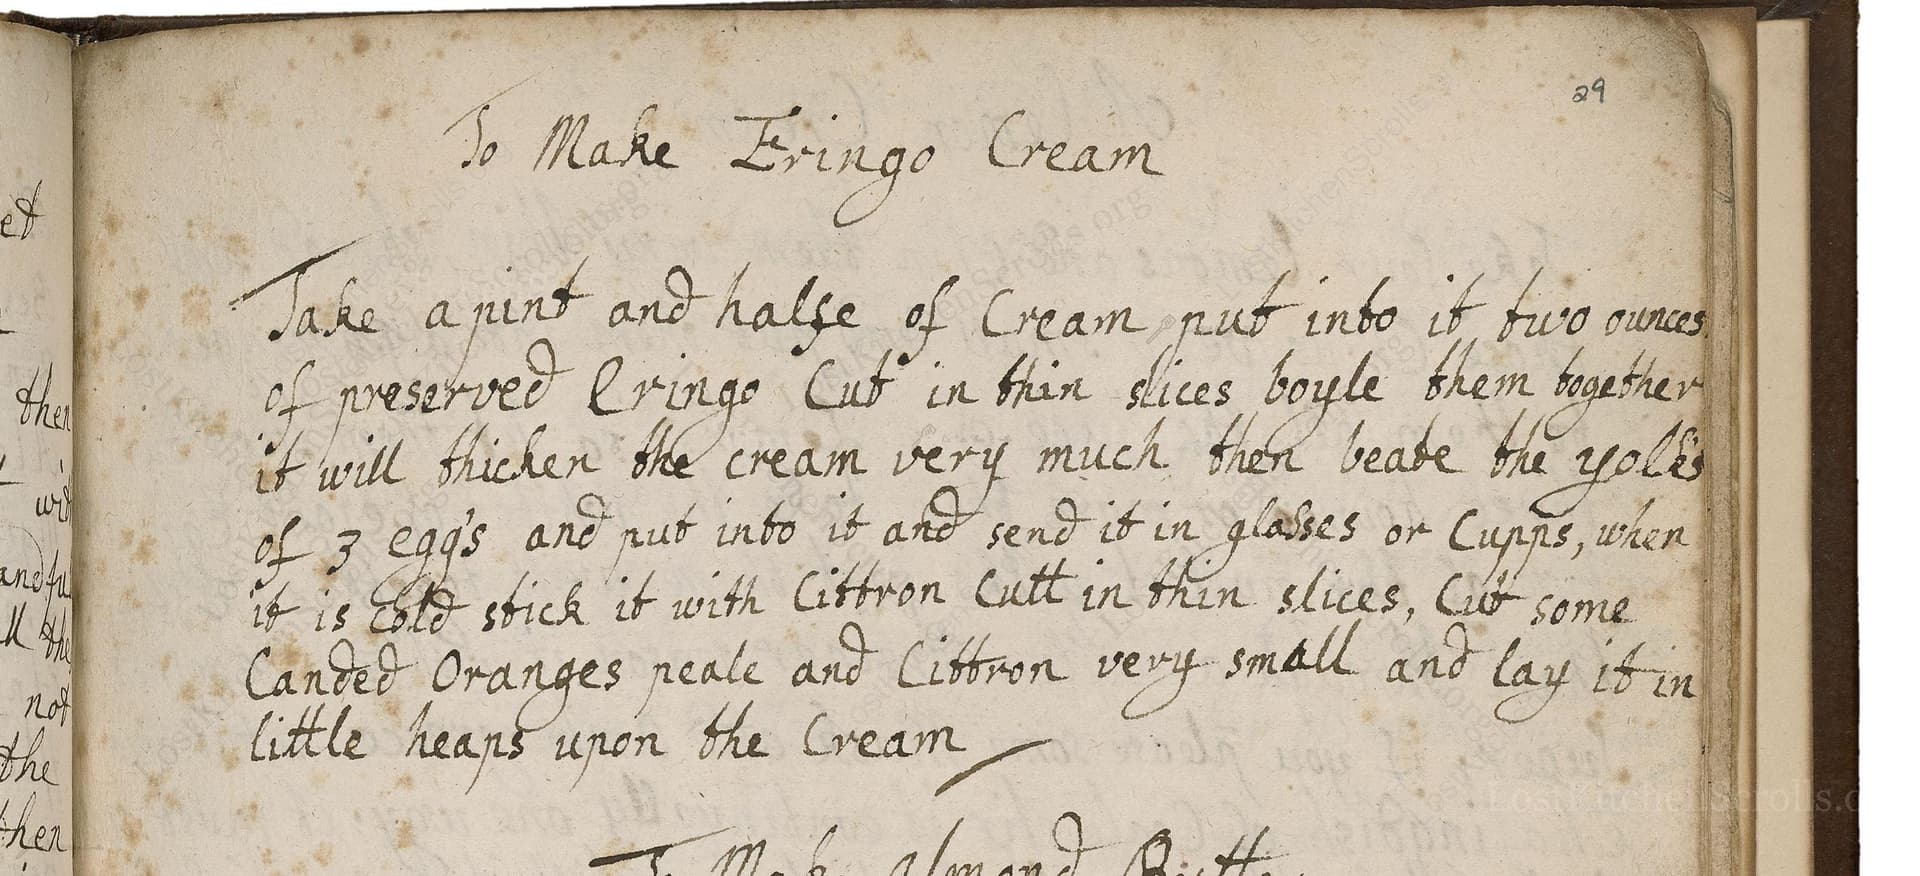 et
then
with
and ful
ll the
not
the
then
29
To Make Eringo Cream
Take a pint and halfe of Cream put into it two ounces
of preserved Eringo Cut in thin slices boyle them together
it will thicken the cream very much then beate the yolks
of 3 egg's and put into it and send it in glasses or Cupps, when
it is cold stick it with Cittron Cutt in thin slices, Cut some
Canded Oranges peale and Cittron very small and lay it in
little heaps upon the Cream
To Make almond Butter
LostKitchenScrolls.o